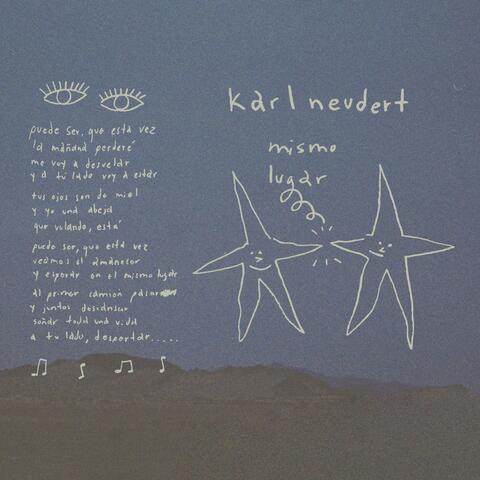 karl neudert
mismo
lugar
puede ser, que esta vez
la mañana perderé
me voy a desvelar
y a tú lado voy a estar
tus ojos son de miel
y yo una abeja
que volando, está
puede ser, que esta vez
veamos el amanecer
y esperar en el mismo lugar
al primer camión pasar
y juntos descansar
soñar toda una vida
a tu lado, despertar.....